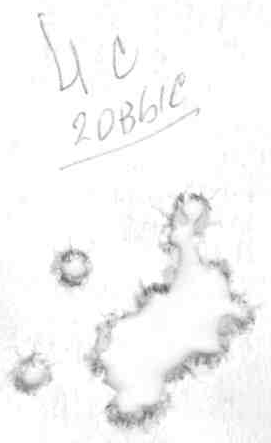 4 С
20ВЫС